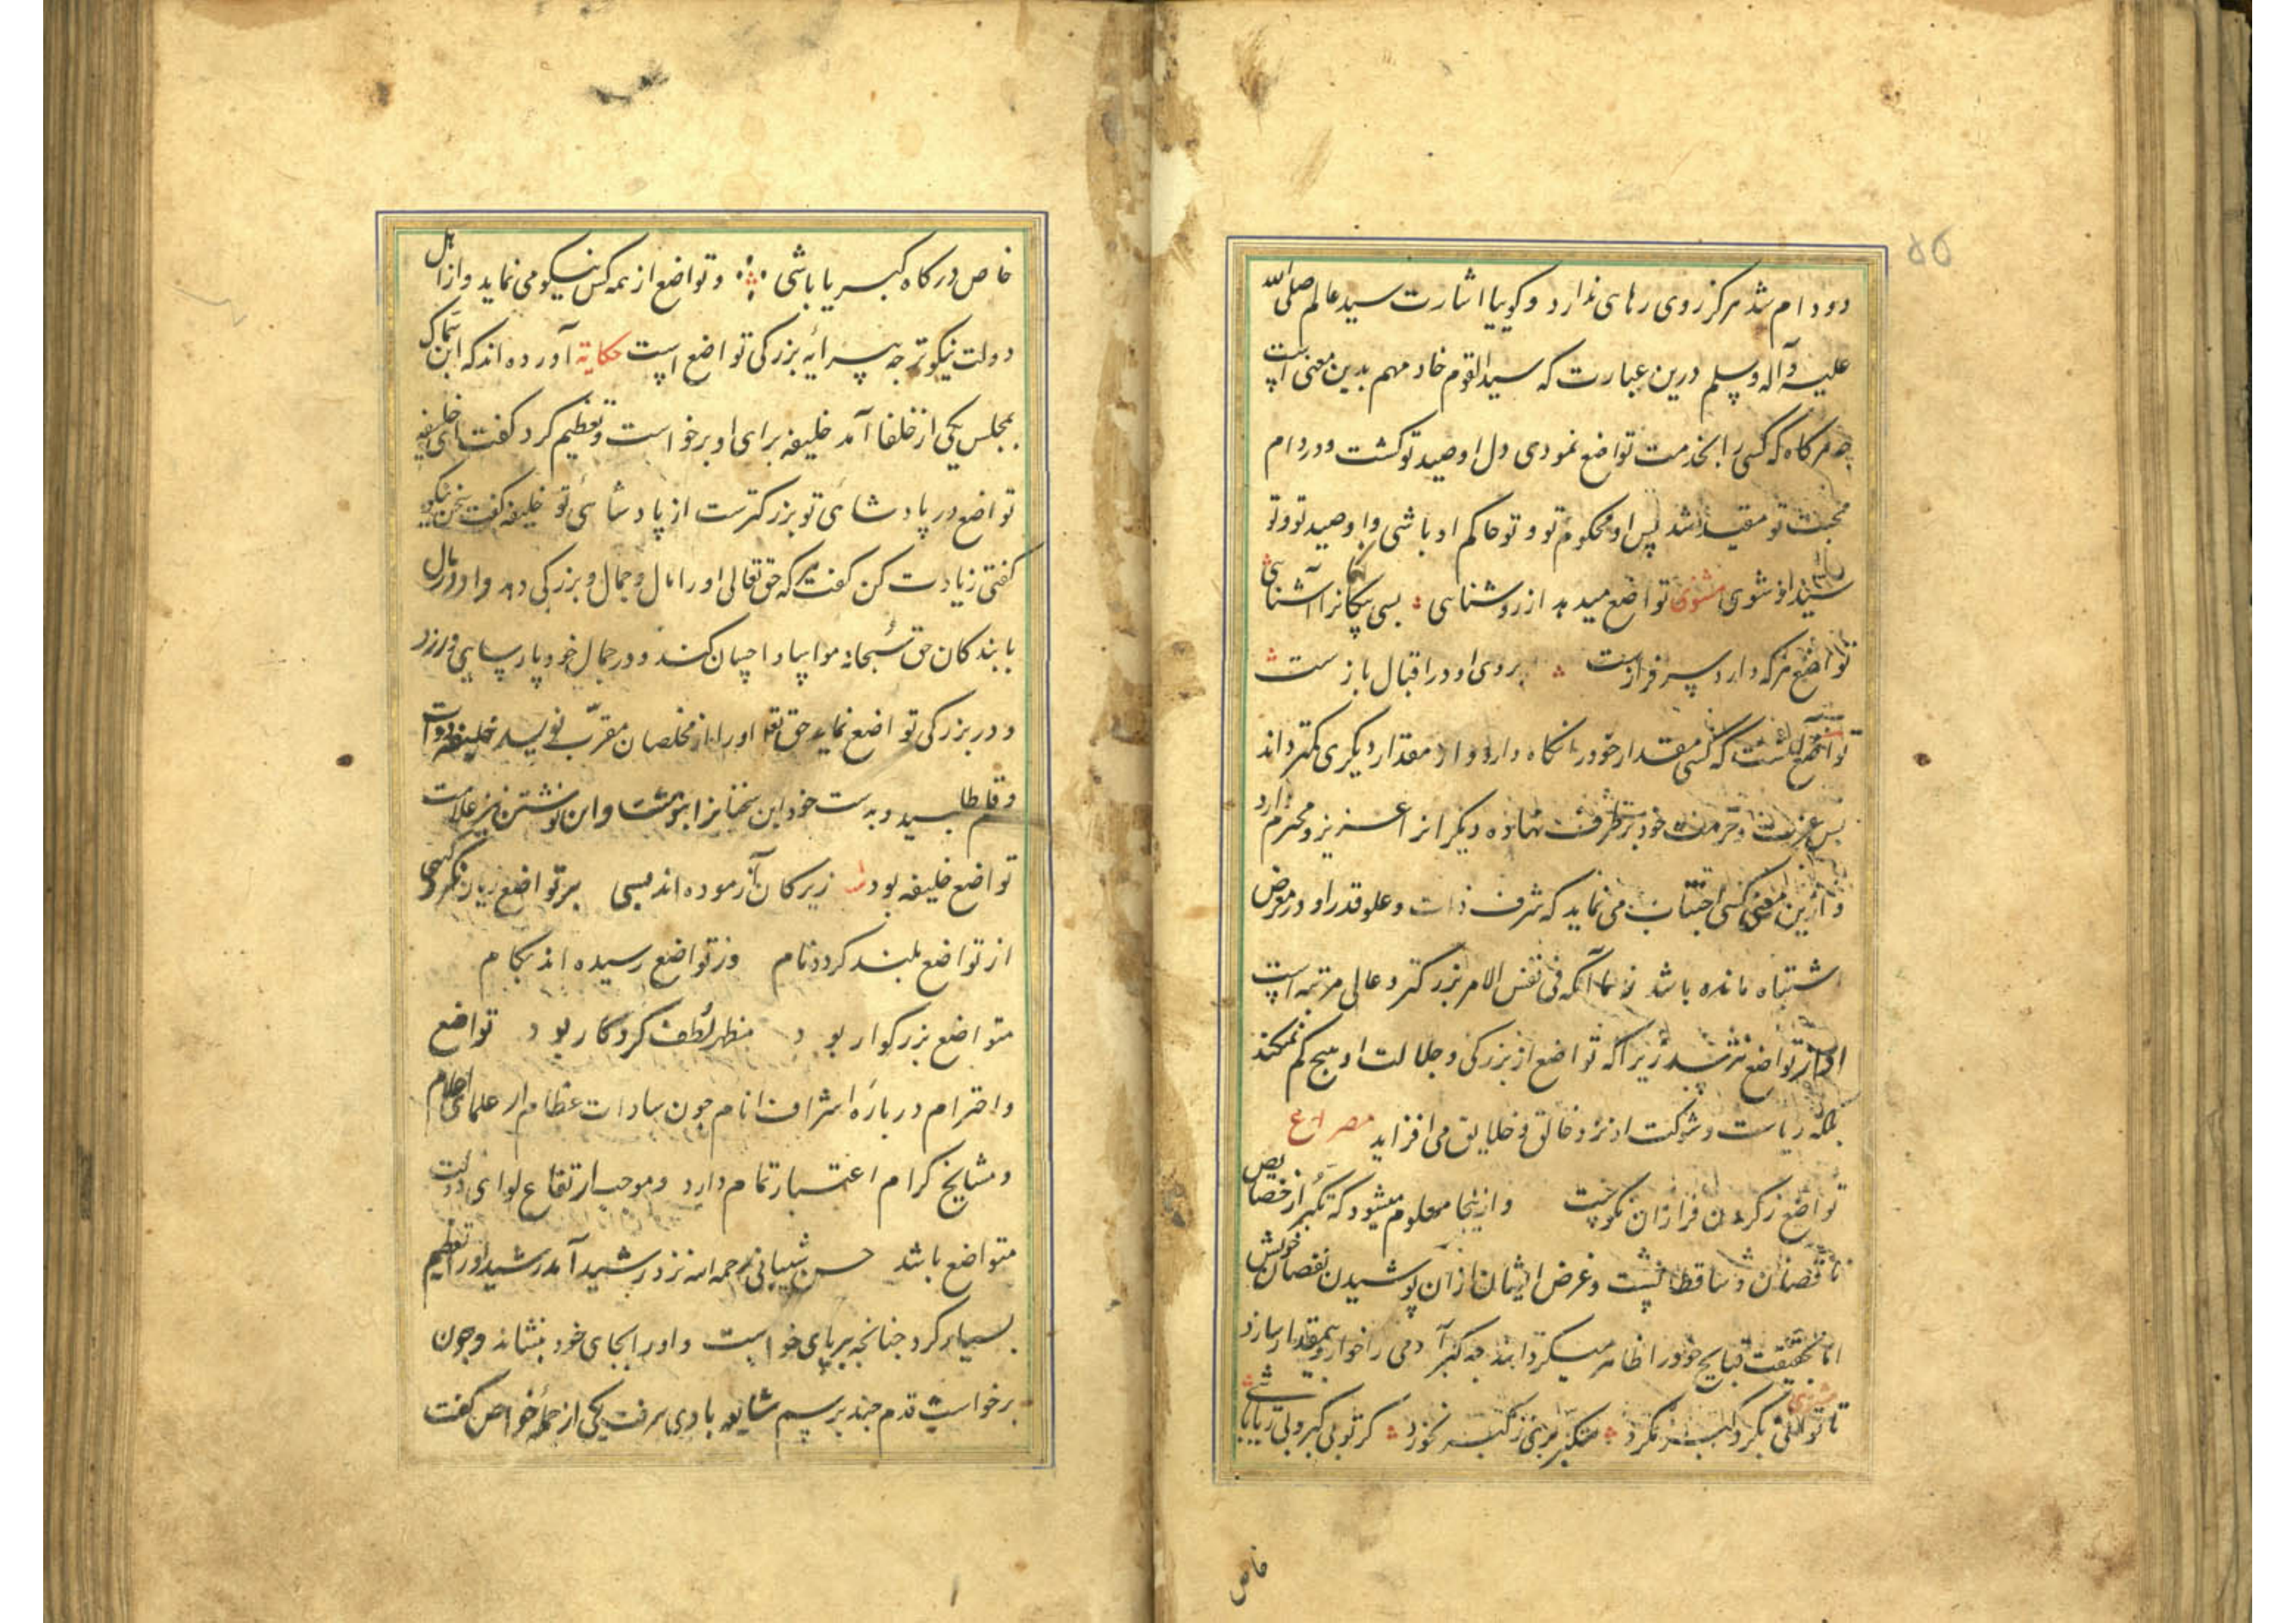 ۵۵
دو دام شد هرکز روی رهای ندارد و کوییا اشارت سید عالم صلی الله
علیه وآله وسلم درین عبارت که سید القوم خادمهم بدین معنی است
چه هرکاه که کسی را بخدمت تواضع نمودی دل او صید تو کشت و در دام
محبت تو مقید شد پس او محکوم تو و تو حاکم او باشی و او صید تو و تو
شوی مثنوی تواضع میدهد از روشناسی بسی بیکانرا آشنایی
تواضع هرکه دارد سرفرازست بروی او در اقبال بازست
تواضع آنست که کسی مقدار خود را نکاه دارد و از مقدار دیکری کمتر داند
پس عزت و حرمت خود برطرف نهاده دیکرانرا عزیز و محترم دارد
و ازین معنی کسی اجتناب می نماید که شرف ذات و علو قدر او در معرض
اشتباه مانده باشد آنکه فی نفس الامر بزرکتر و عالی مرتبه است
او از تواضع نترسد زیرا که تواضع از بزرکی و جلالت او هیچ کم نمیکند
بلکه ریاست و شوکت او نزد خالق و خلایق می افزاید مصراع
تواضع زکردن فرازان نکوست و ازینجا معلوم میشود که تکبر از خصایص
ناقصان و ساقطانست و غرض ایشان ازان پوشیدن نقصان خویش
اما بحقیقت قبایح خود را ظاهر میکردانند چه کبر آدمی را خوار و بیمقدار سازد
تا توانی بکرد کبر مکرد متکبر بر نخورد کر تو بی کبر و بی ریا باشی
خاص
خاص درکاه کبریا باشی و تواضع از همه کس نیکو می نماید و از اهل
دولت نیکوتر چه پیرایه بزرکی تواضع است حکایة آورده اند که ابن سماک
بمجلس یکی از خلفا آمد خلیفه برای او برخواست و تعظیم کرد کفت ای خلیفه
تواضع در پادشائی تو بزرکترست از پادشائی تو خلیفه کفت سخن نیکو
کفتی زیادت کن کفت هرکه حق تعالی او را مال و جمال و بزرکی دهد و او در مال
با بندکان حق سبحانه مواسا و احسان کند و در جمال خود پارسایی ورزد
و در بزرکی تواضع نماید حق تعا او را از مخلصان مقرب نویسد خلیفه دوات
و قلم طلبید و بدست خود این سخنانرا بنوشت و این نوشتن نیز علامت
تواضع خلیفه بود زیرکان آزموده اند بسی بر تواضع زیان نکرد کسی
از تواضع بلند کردد نام وز تواضع رسیده اند بکام
متواضع بزرکوار بود مظهر لطف کردکار بود تواضع
و احترام درباره اشراف انام چون سادات عظام و علمای اعلام
و مشایخ کرام اعتبار تمام دارد و موجب ارتفاع لوای دولت
متواضع باشد حسن شیبانی رحمه الله نزد رشید آمد رشید او را تعظیم
بسیار کرد چنانچه بر پای خواست و او را بجای خود بنشاند و چون
برخواست قدم چند برسم مشایعه با وی برفت یکی از جمله خواص کفت